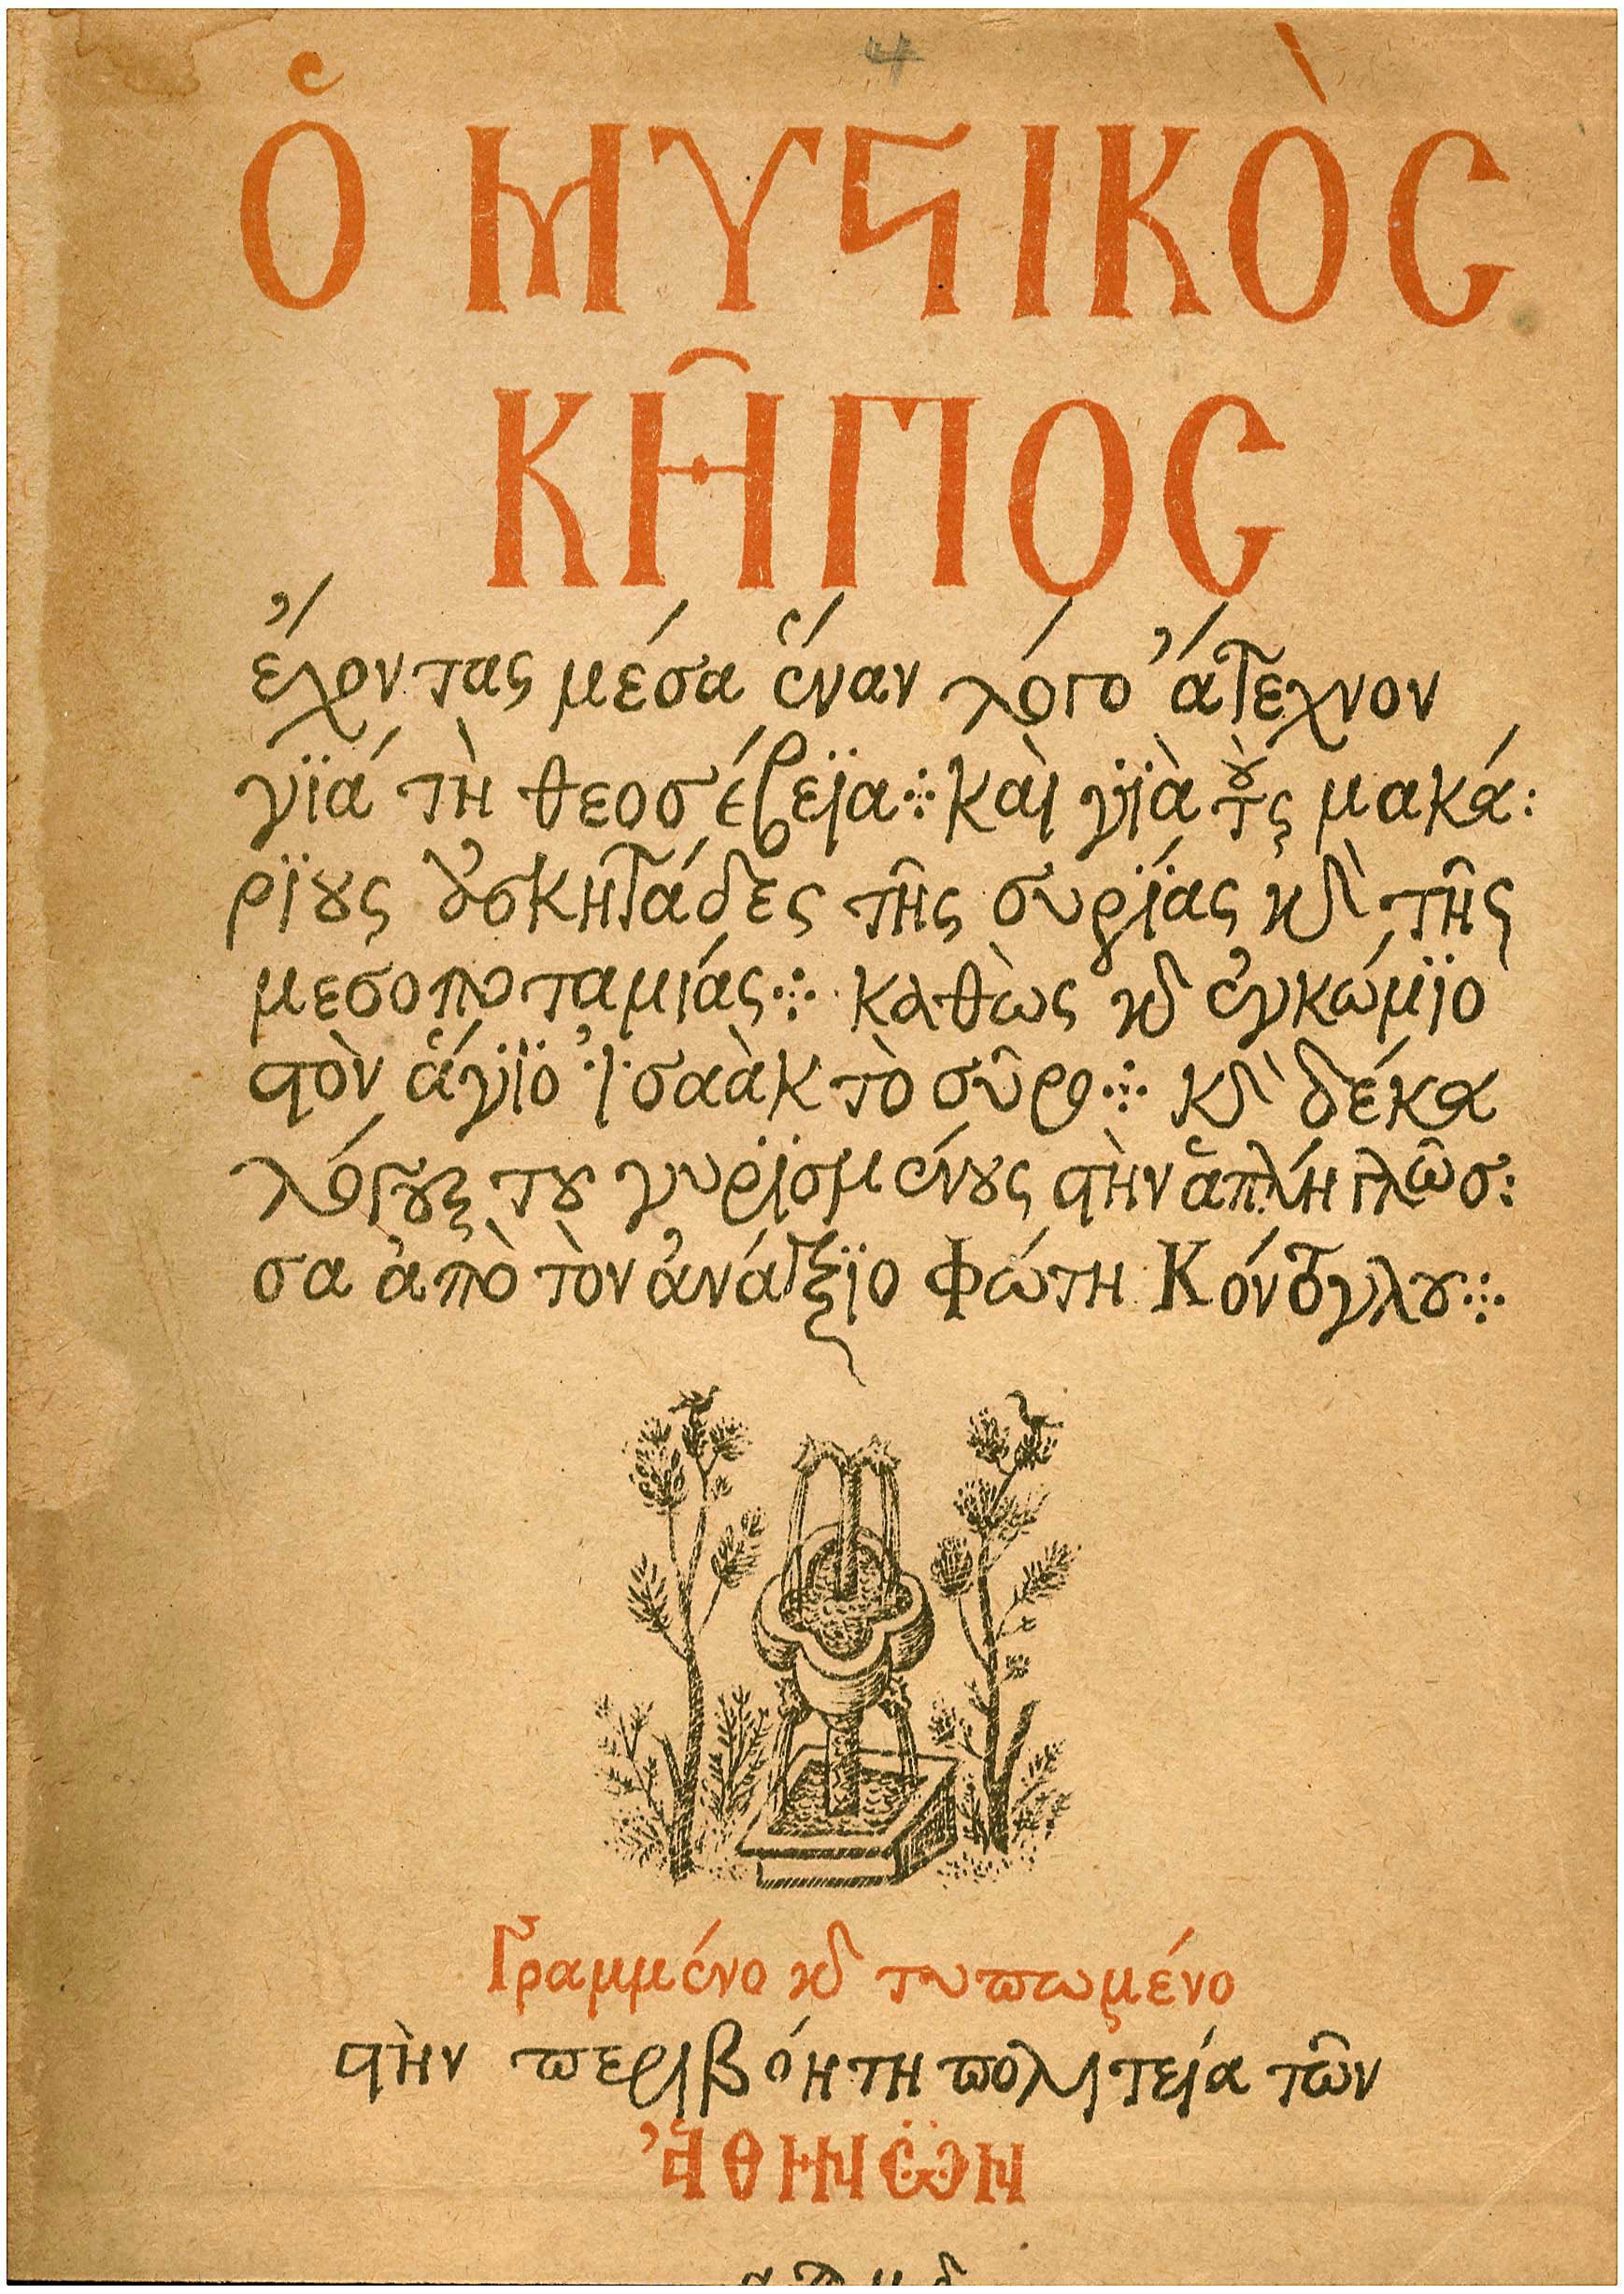 Ὁ ΜΥϚΙΚῸϹ
ΚΗ͂ΠΟϹ
ἔχοντας μέσα ἕναν λόγο ἄτεχνον
γϊά τὴ θεοσέβεϊα⁘ καὶ γϊὰ τȣ̀ς μακά:
ρϊȣς ἀσκητάδες τῆς συρΐας ϗ̀ τῆς
μεσοποταμίας⁘ καθὼς ϗ ἐγκώμϊο
ϛὸν ἅγϊο Ἰσαὰκ τὸ σῦρο⁘ ϗ̀ δέκα
λόγȣς τȣ γυρϊσμένȣς ϛὴν ἁπλή γλῶσ:
σα ἀπὸ τὸν ἀνάξϊο Φώτη Κόντογλȣ⁘
Γραμμένο ϗ τυπωμένο
ϛὴν περιβόητη πολιτεία τῶν
ἈΘΗΝΩ͂Ν